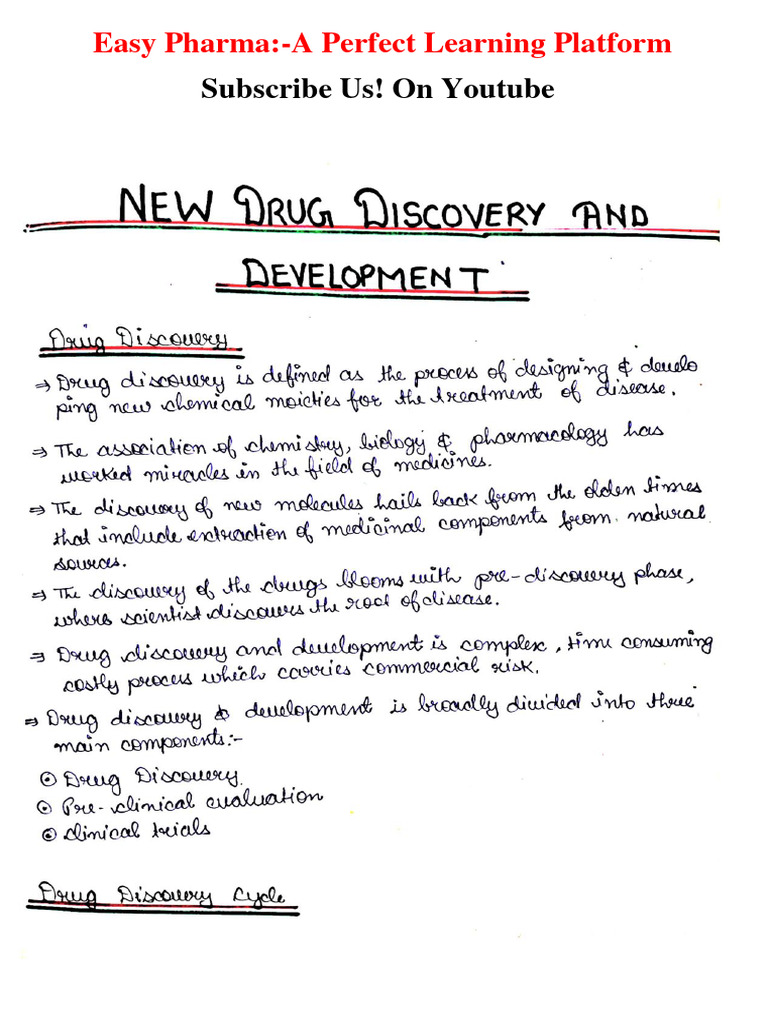 Easy Pharma:-A Perfect Learning Platform
Subscribe Us! On Youtube
NEW DRUG DISCOVERY AND
DEVELOPMENT
Drug Discovery
⇒ Drug discovery is defined as the process of designing & develo
ping new chemical moieties for the treatment of disease.
⇒ The association of chemistry, biology & pharmacology has
worked miracles in the field of medicines.
⇒ The discovery of new molecules hails back from the olden times
that include extraction of medicinal components from natural
sources.
⇒ The discovery of the drugs blooms with pre-discovery phase,
where scientist discovers the root of disease.
⇒ Drug discovery and development is complex, time consuming
costly process which carries commercial risk.
⇒ Drug discovery & development is broadly divided into three
main components:-
⊙ Drug Discovery.
⊙ Pre-clinical evaluation
⊙ Clinical trials
Drug Discovery Cycle